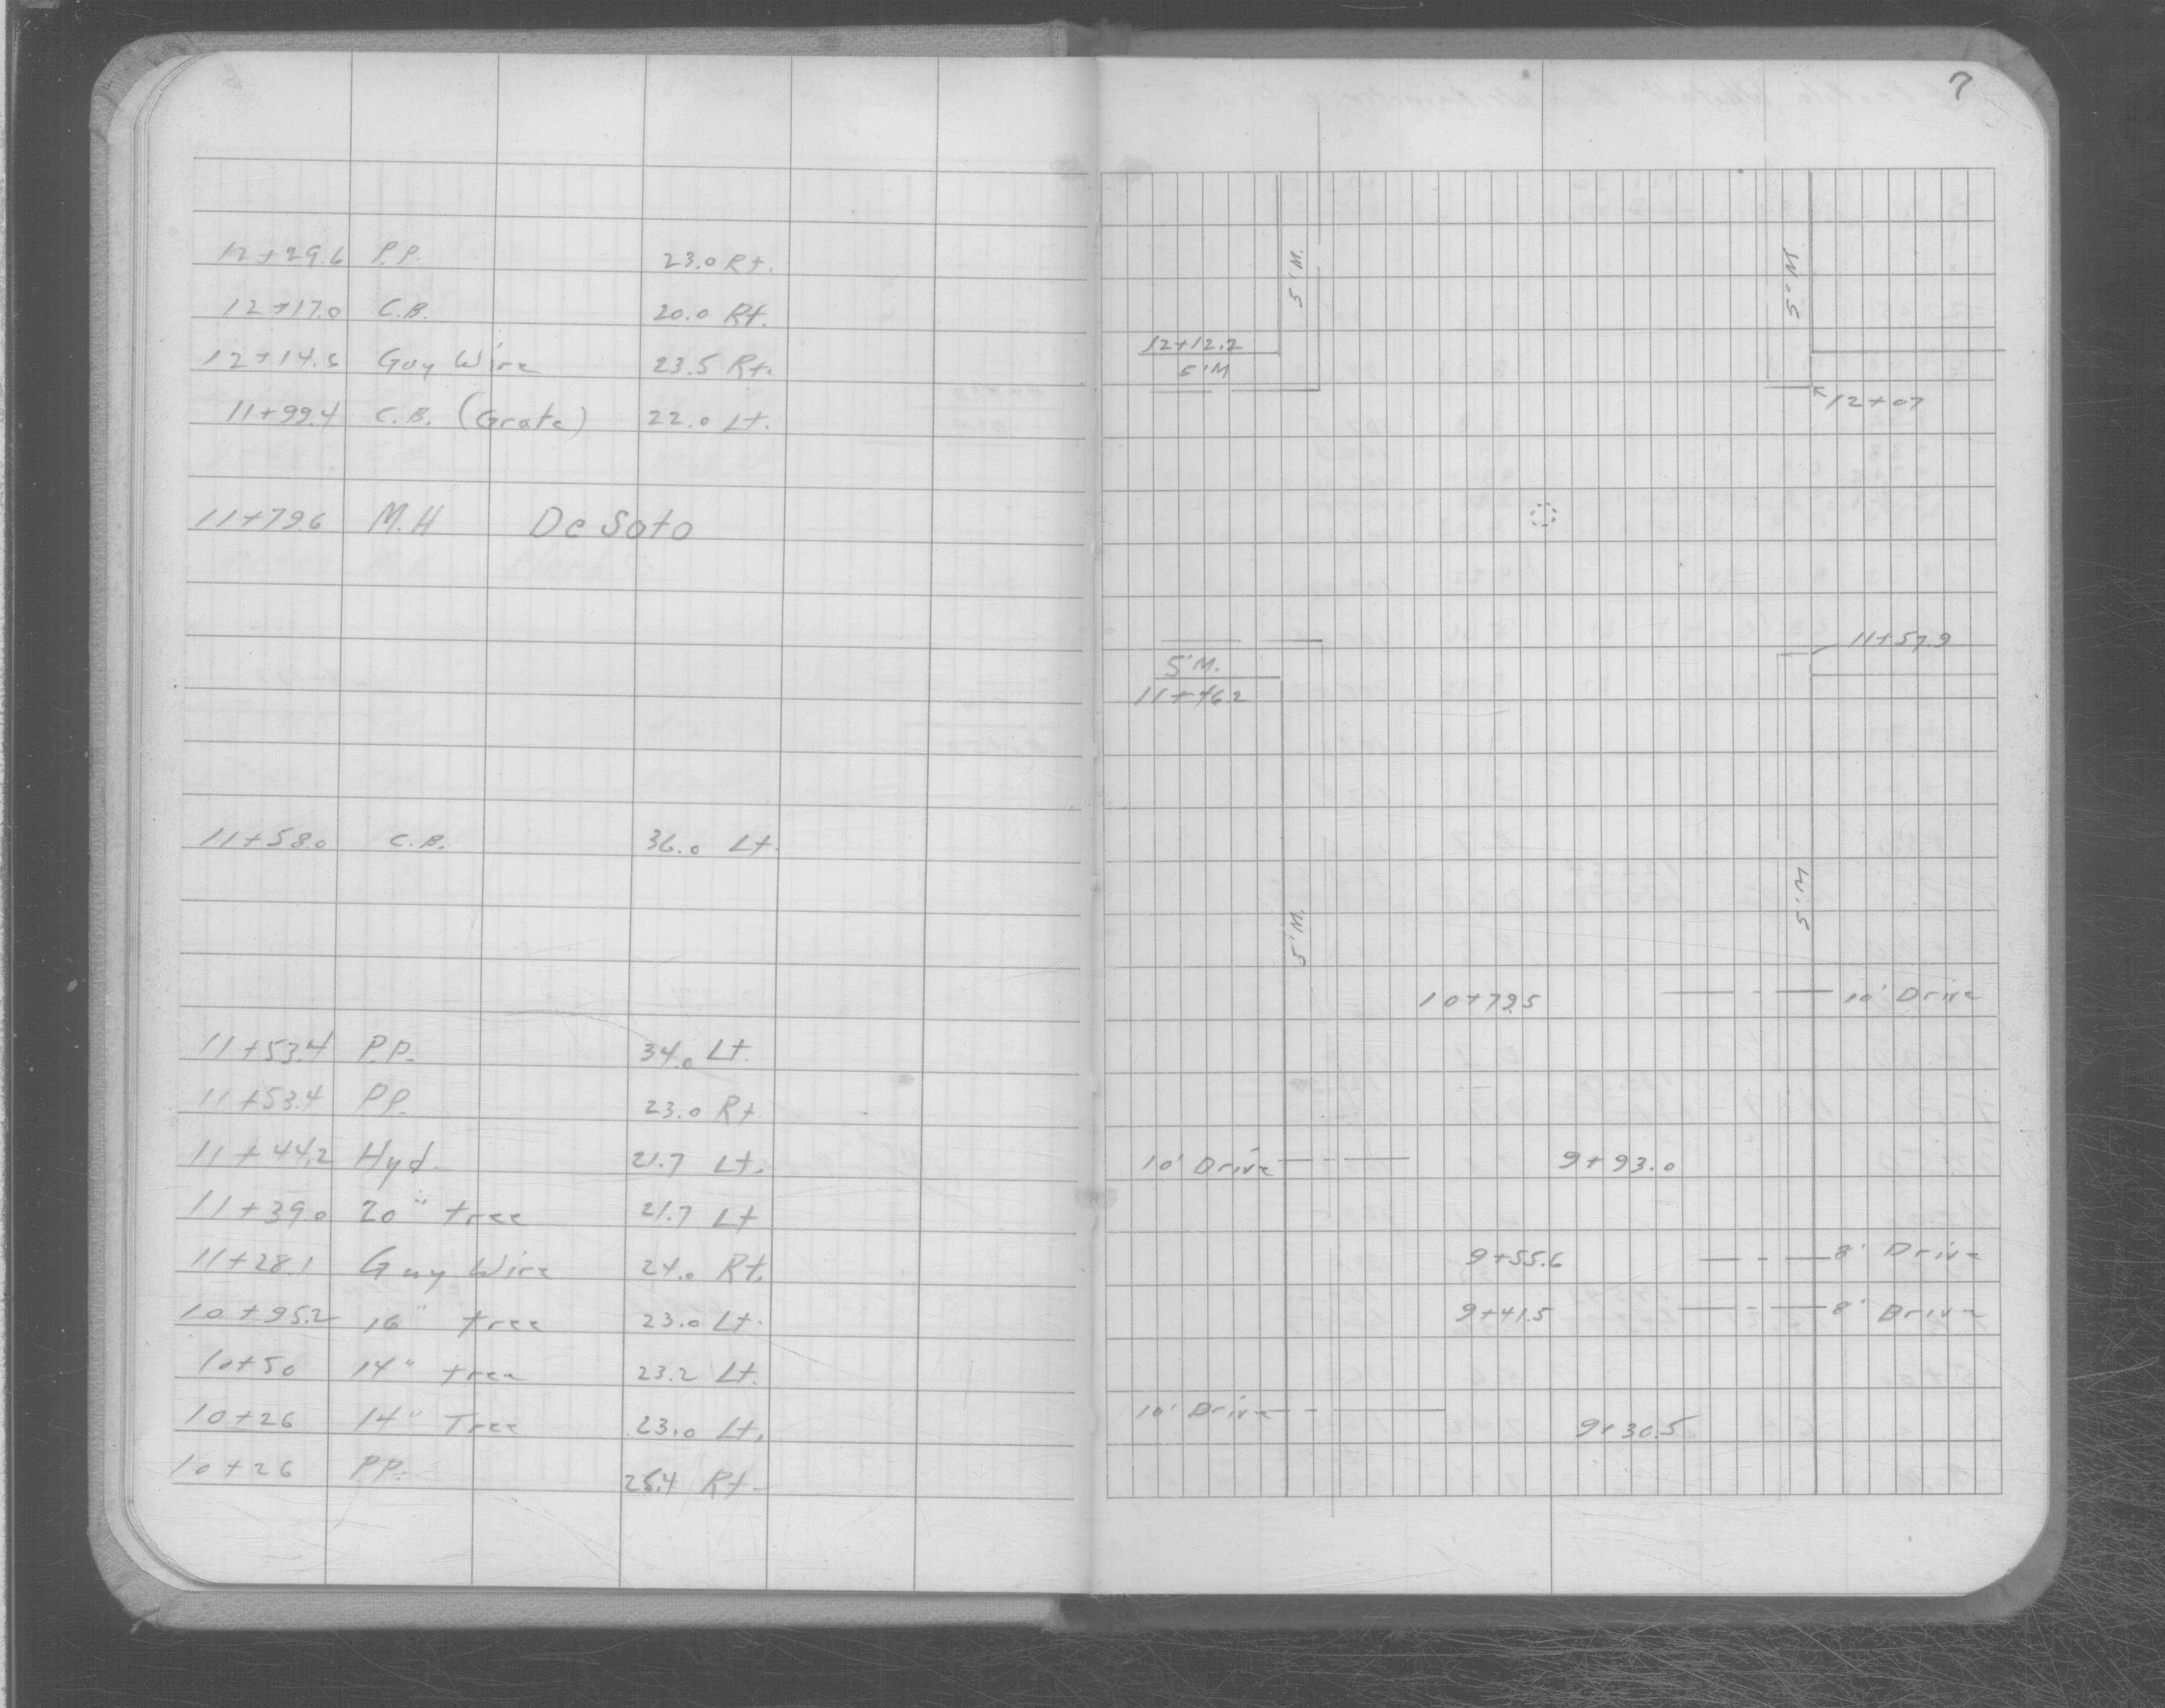 7
12+29.6 P.P. 23.0 Rt.
12+17.0 C.B. 20.0 Rt.
12+14.6 Guy Wire 23.5 Rt.
11+99.4 C.B. (Grate) 22.0 Lt.
11+79.6 M.H De Soto
11+58.0 C.B. 36.0 Lt.
11+53.4 P.P. 34.0 Lt.
11+53.4 P.P. 23.0 Rt
11+44.2 Hyd. 21.7 Lt.
11+39.0 20" tree 21.7 Lt
11+28.1 Guy Wire 24.0 Rt.
10+95.2 16" tree 23.0 Lt.
10+50 14" tree 23.2 Lt.
10+26 14" Tree 23.0 Lt.
10+26 P.P. 25.4 Rt.
5'M. 5'M
12+12.2
5'M
12+07
11+57.9
5'M.
11+46.2
5'M. 5'M
10+79.5 10' Drive
10' Drive 9+93.0
9+55.6 8' Drive
9+41.5 8' Drive
10' Drive 9+30.5